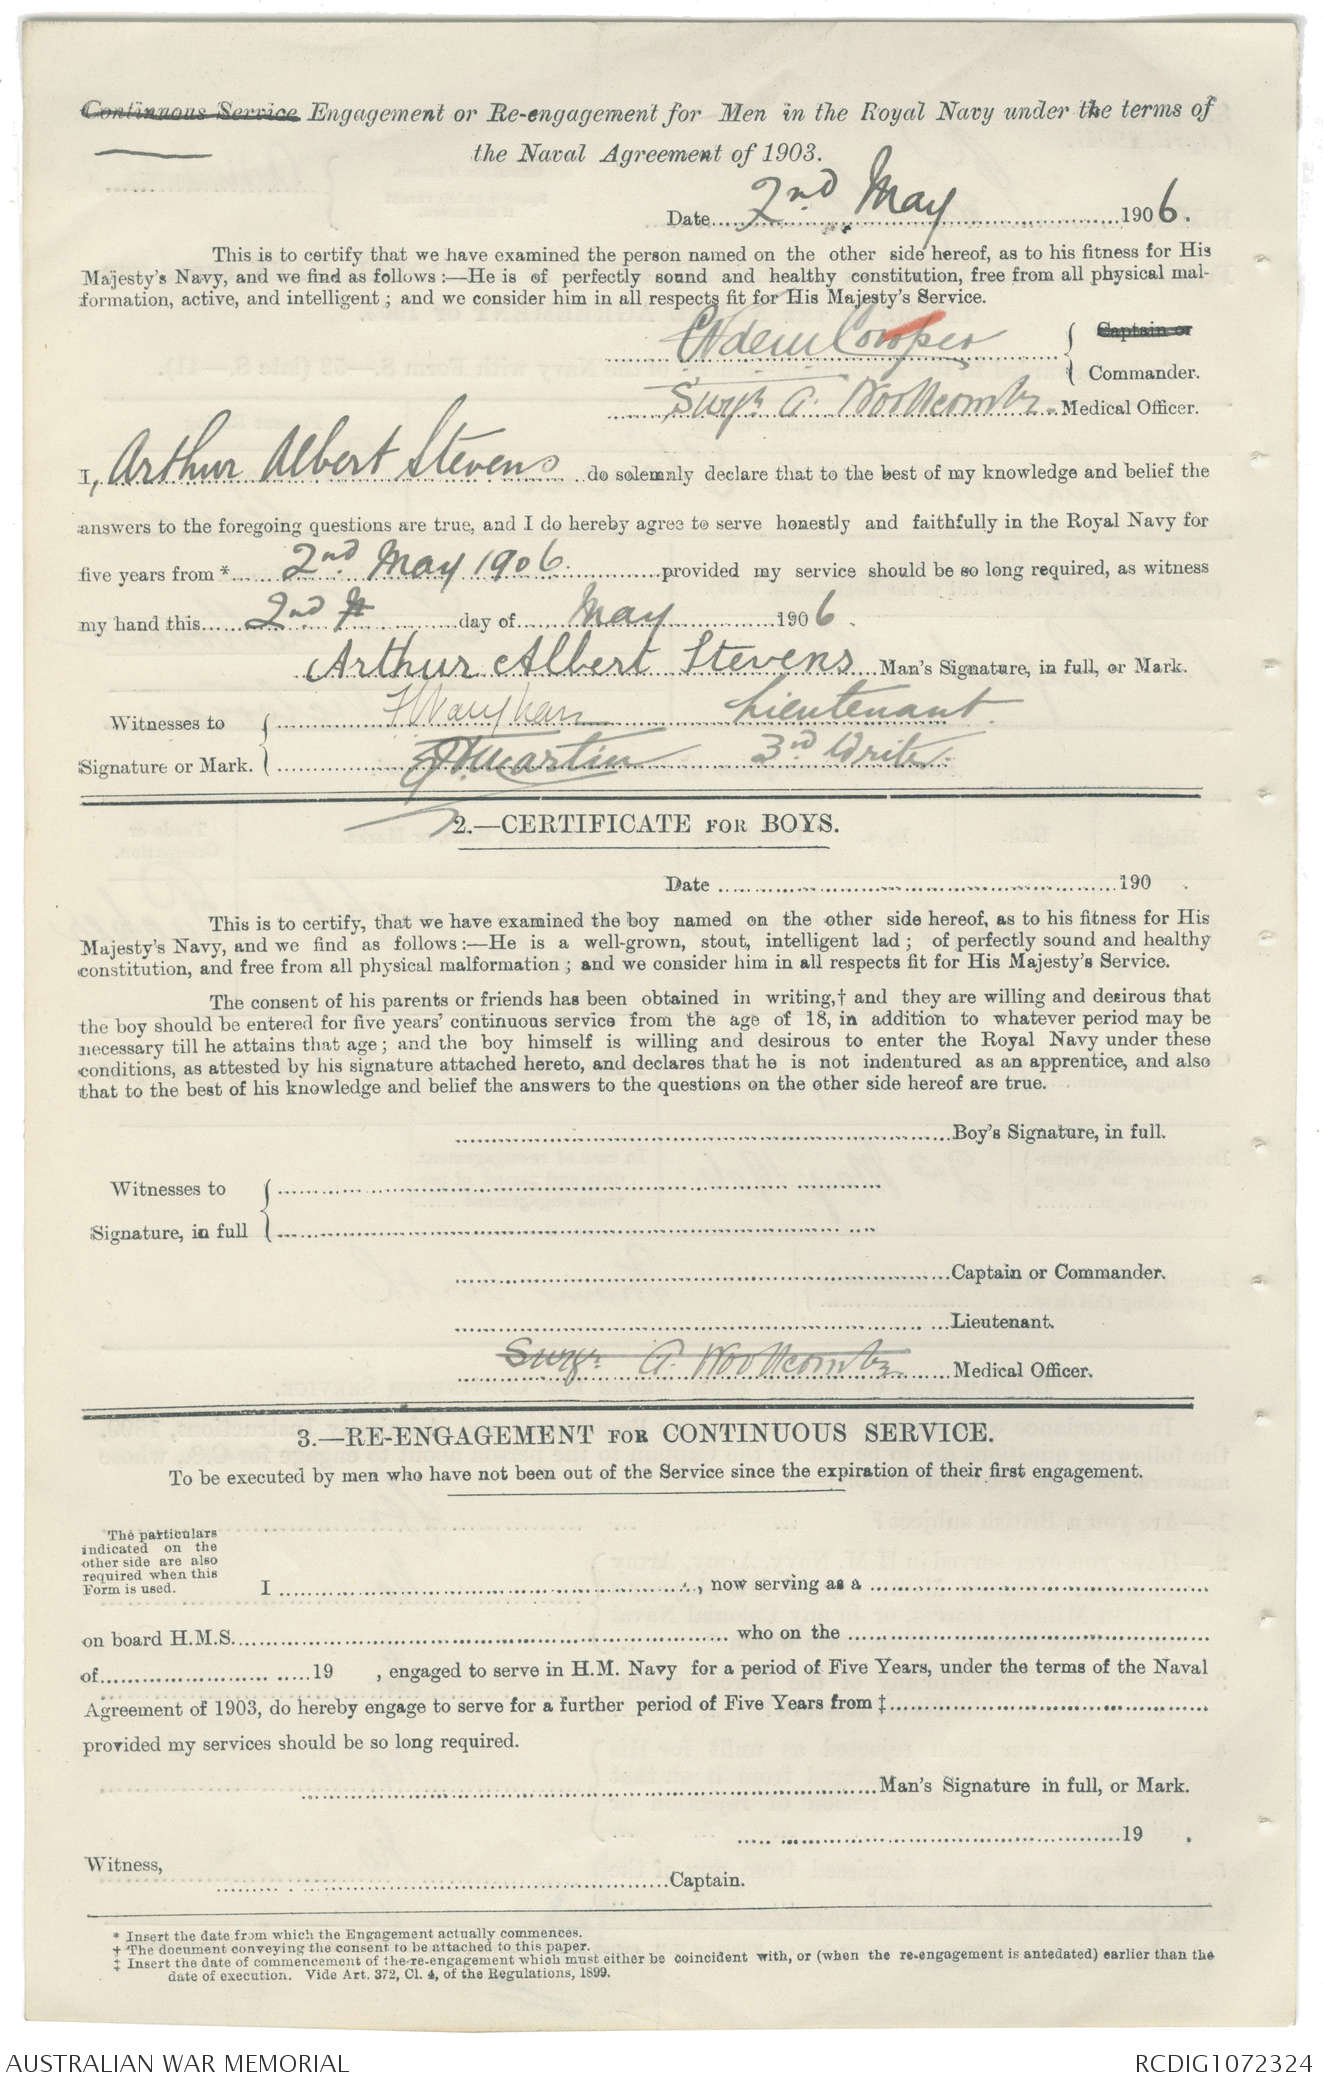 Continuous Service Engagement or Re-engagement for Men in the Royal Navy under the terms of
the Naval Agreement of 1903.
Date 2nd May 1906.
This is to certify that we have examined the person named on the other side hereof, as to his fitness for His
Majesty's Navy, and we find as follows:—He is of perfectly sound and healthy constitution, free from all physical mal-
formation, active, and intelligent; and we consider him in all respects fit for His Majesty's Service.
Cowper { Captain or
Commander.
Surgn A. Woollcombe Medical Officer.
I, Arthur Albert Stevens do solemnly declare that to the best of my knowledge and belief the
answers to the foregoing questions are true, and I do hereby agree to serve honestly and faithfully in the Royal Navy for
five years from * 2nd May 1906. provided my service should be so long required, as witness
my hand this 2nd day of May 1906.
Arthur Albert Stevens Man's Signature, in full, or Mark.
Witnesses to { Vaughan Lieutenant.
Signature or Mark. Martin 3rd Writer.
2.—CERTIFICATE FOR BOYS.
Date 190 .
This is to certify, that we have examined the boy named on the other side hereof, as to his fitness for His
Majesty's Navy, and we find as follows:—He is a well-grown, stout, intelligent lad; of perfectly sound and healthy
constitution, and free from all physical malformation; and we consider him in all respects fit for His Majesty's Service.
The consent of his parents or friends has been obtained in writing,† and they are willing and desirous that
the boy should be entered for five years' continuous service from the age of 18, in addition to whatever period may be
necessary till he attains that age; and the boy himself is willing and desirous to enter the Royal Navy under these
conditions, as attested by his signature attached hereto, and declares that he is not indentured as an apprentice, and also
that to the best of his knowledge and belief the answers to the questions on the other side hereof are true.
Boy's Signature, in full.
Witnesses to {
Signature, in full
Captain or Commander.
Lieutenant.
Surgn A. Woollcombe Medical Officer.
3.—RE-ENGAGEMENT FOR CONTINUOUS SERVICE.
To be executed by men who have not been out of the Service since the expiration of their first engagement.
The particulars
indicated on the
other side are also
required when this
Form is used.
I , now serving as a
on board H.M.S. who on the
of 19 , engaged to serve in H.M. Navy for a period of Five Years, under the terms of the Naval
Agreement of 1903, do hereby engage to serve for a further period of Five Years from ‡
provided my services should be so long required.
Man's Signature in full, or Mark.
19 .
Witness,
Captain.
* Insert the date from which the Engagement actually commences.
† The document conveying the consent to be attached to this paper.
‡ Insert the date of commencement of the re-engagement which must either be coincident with, or (when the re-engagement is antedated) earlier than the
date of execution. Vide Art. 372, Cl. 4, of the Regulations, 1899.
AUSTRALIAN WAR MEMORIAL
RCDIG1072324